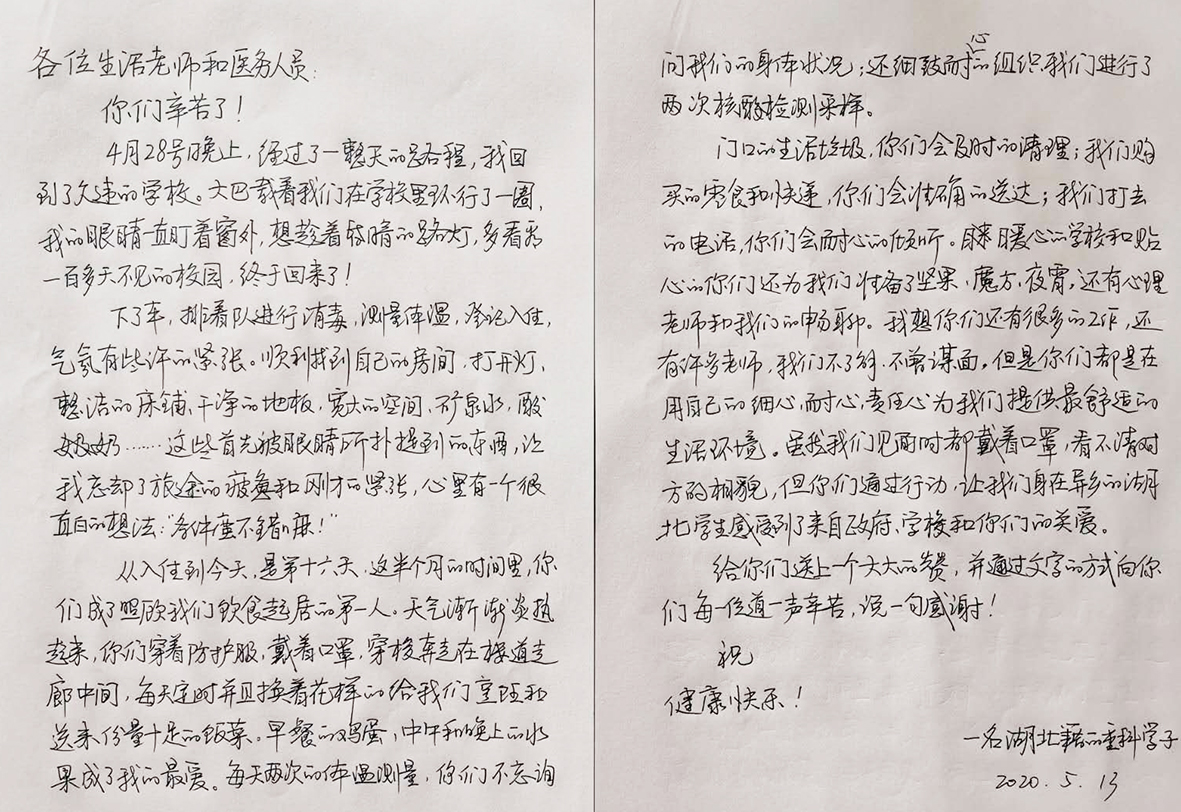 各位生活老师和医务人员:
你们辛苦了!
4月28号晚上,经过了一整天的路程,我回
到了久违的学校。大巴载着我们在学校里环行了一圈,
我的眼睛一直盯着窗外,想趁着较暗的路灯,多看看
一百多天不见的校园,终于回来了!
下了车,排着队进行消毒,测量体温,登记入住,
气氛有些许的紧张。顺利找到自己的房间,打开灯,
整洁的床铺、干净的地板,宽大的空间、矿泉水,酸
奶……这些首先被眼睛所扑捉到的东西,让
我忘却了旅途的疲惫和刚才的紧张,心里有一个很
直白的想法:“条件蛮不错嘛!”
从入住到今天,是第十六天,这半个月的时间里,你
们成了照顾我们饮食起居的第一人。天气渐渐炎热
起来,你们穿着防护服,戴着口罩,穿梭奔走在楼道走
廊中间,每天定时并且换着花样的给我们宣班和
送来份量十足的饭菜。早餐的鸡蛋,中午和晚上的水
果成了我的最爱。每天两次的体温测量,你们不忘询
问我们的身体状况;还细致耐心的组织我们进行了
两次核酸检测采样。
门口的生活垃圾,你们会及时的清理;我们购
买的零食和快递,你们会准确的送达;我们打去
的电话,你们会耐心的倾听。暖心的学校和贴
心的你们还为我们准备了坚果,魔方,夜宵,还有心理
老师和我们的畅聊。我想你们还有很多的工作,还
有许多老师,我们不了解,不曾谋面。但是你们都是在
用自己的细心,耐心,责任心为我们提供最舒适的
生活环境。虽然我们见面时都戴着口罩,看不清对
方的相貌,但你们通过行动,让我们身在异乡的湖
北学生感受到了来自政府、学校和你们的关爱。
给你们送上一个大大的赞,并通过文字的方式向你
们每一位道一声辛苦,说一句感谢!
祝
健康快乐!
一名湖北籍的重科学子
2020.5.13